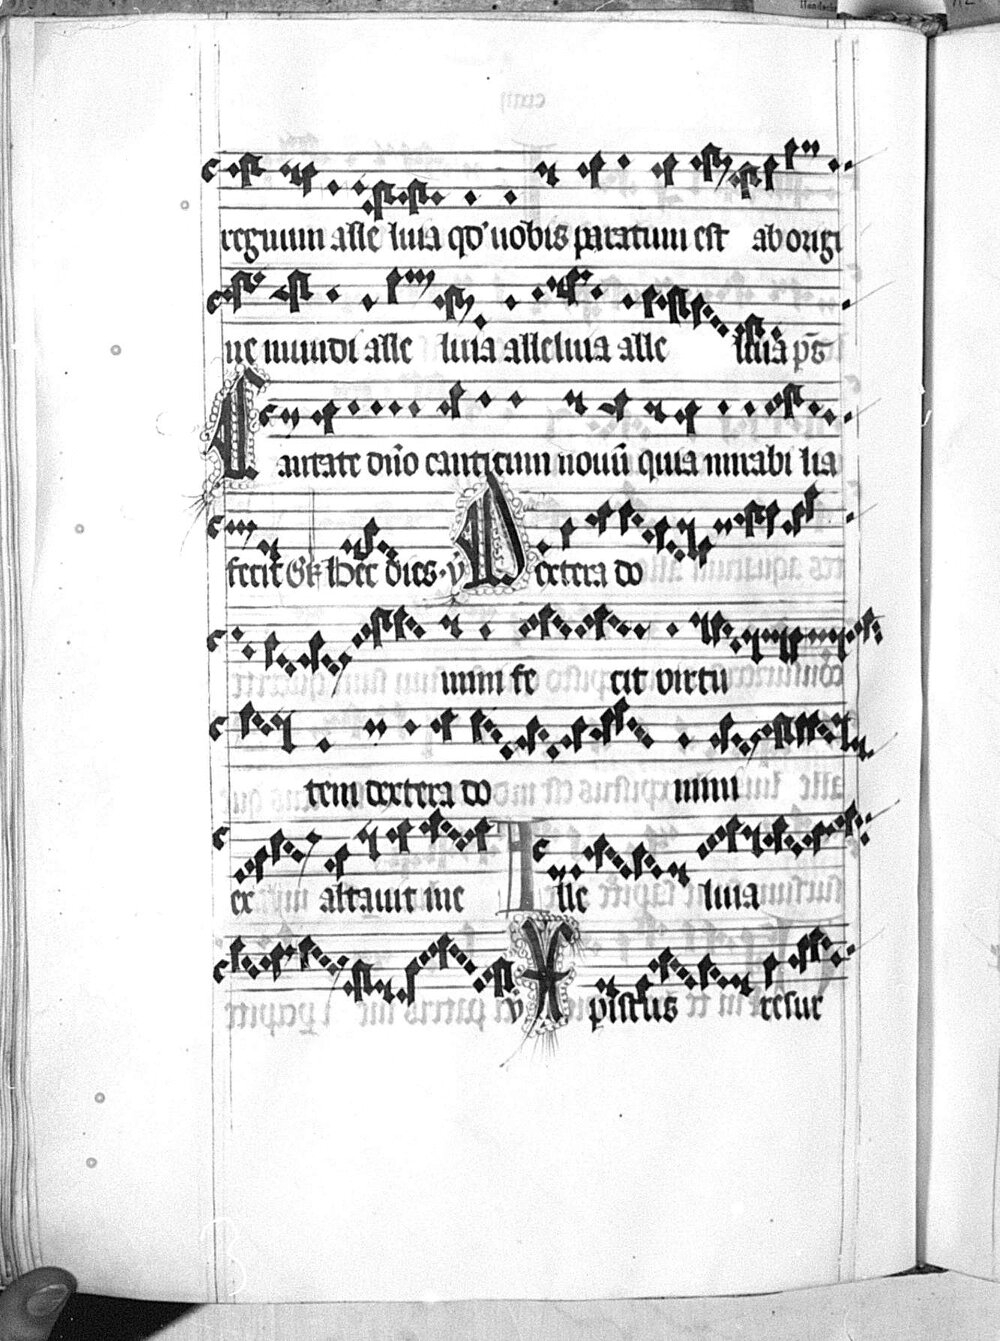 regnum alle luia qd' uobis paratum est ab origi
ne mundi alle luia alleluia alle luia ps̄
Cantate dn̄o canticum nouū quia mirabi lia
fecit Gr̄ Hec dies · v̄ Dextera do
mini fe cit virtu
tem dextera do mini
ex altauit me Alle luia
v̄ Xpistus resur